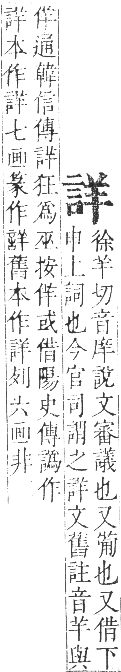 詳
徐羊切音庠說文審議也又也又借下
申上詞也今官司謂之詳文舊註音羊與
佯通韓信傳詳狂爲巫按佯或借陽史傳譌作
詳本作詳七画篆作舊本作詳列六画非